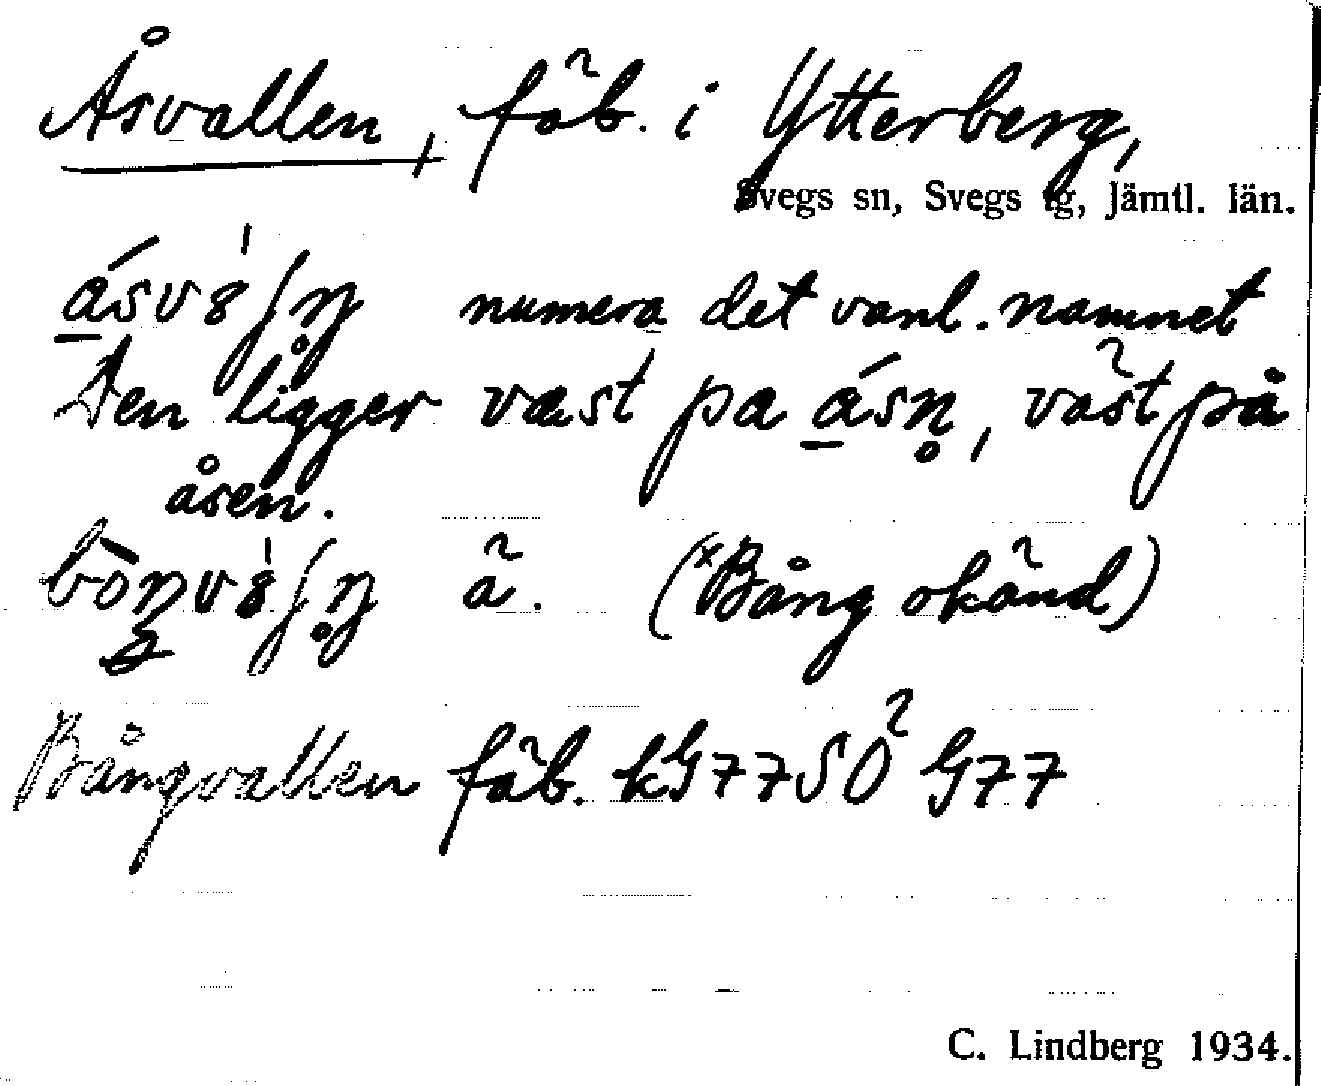 Åsvallen, fäb. i Ytterberg,
Svegs sn, Svegs tg, Jämtl. län.
numera det vanl. namnet
Den ligger väst pa ásn̥, väst på
åsen.
ä. (ˣBång okänd)
Bångvallen fäb. kG77SO² G77
C. Lindberg 1934.